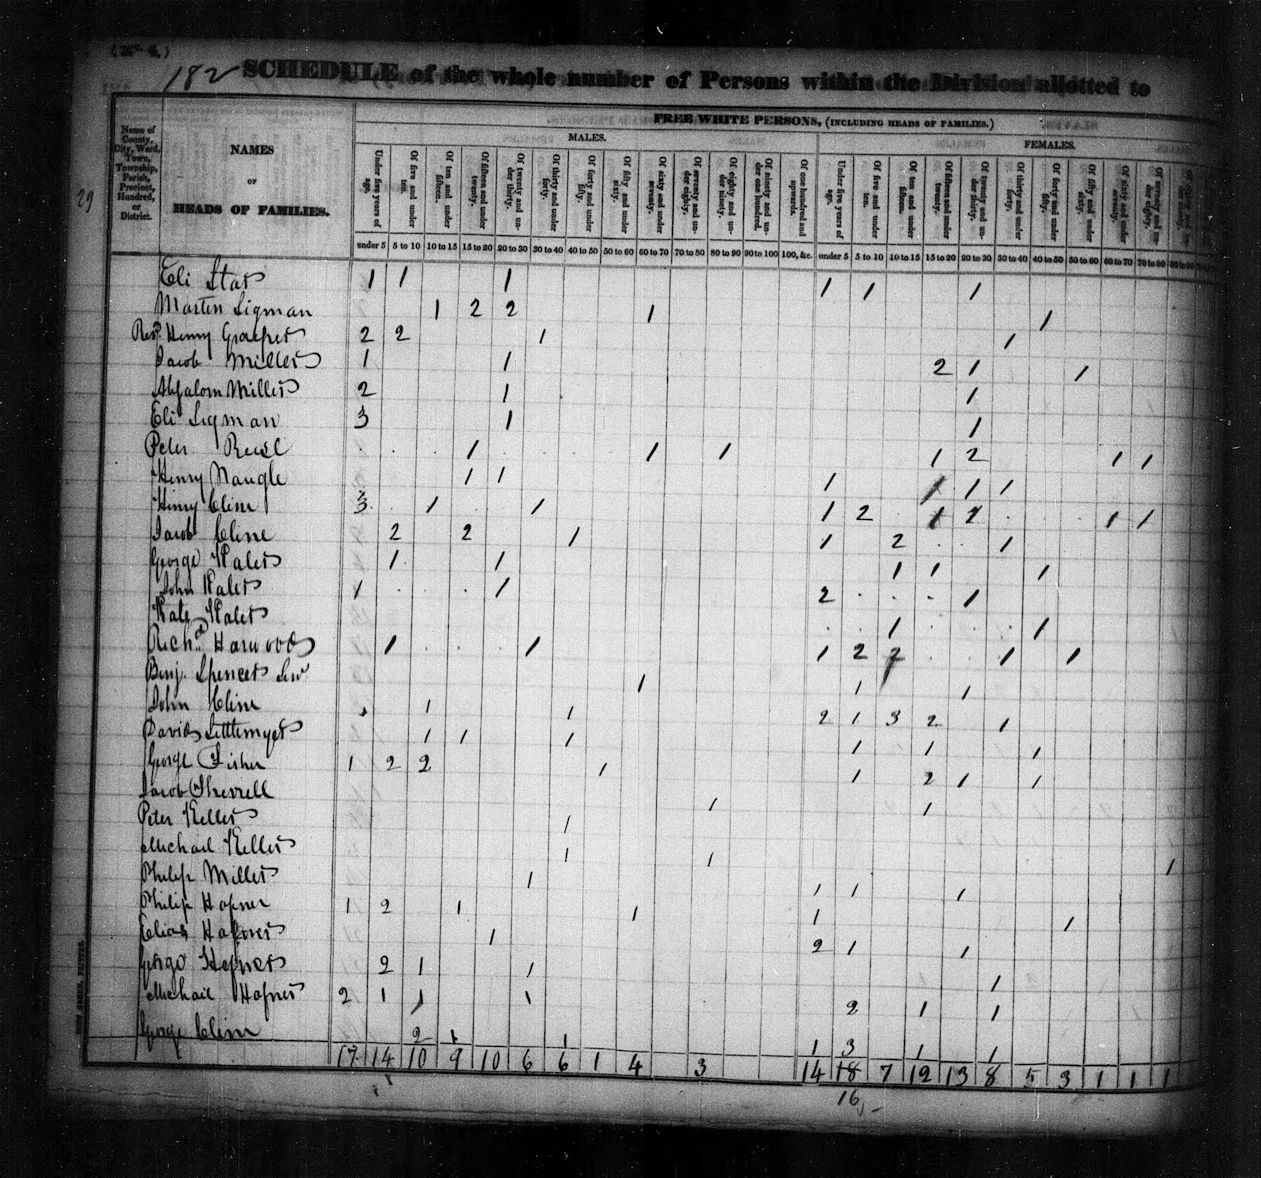 (No. 4.)
182 SCHEDULE of the whole number of Persons within the Division allotted to
FREE WHITE PERSONS, (INCLUDING HEADS OF FAMILIES.)
MALES. FEMALES.
Name of County, City, Ward, Town, Township, Parish, Precinct, Hundred, or District.
NAMES
OF
HEADS OF FAMILIES.
29
Under five years of age. Of five and under ten. Of ten and under fifteen. Of fifteen and under twenty. Of twenty and under thirty. Of thirty and under forty. Of forty and under fifty. Of fifty and under sixty. Of sixty and under seventy. Of seventy and under eighty. Of eighty and under ninety. Of ninety and under one hundred. Of one hundred and upwards. Under five years of age. Of five and under ten. Of ten and under fifteen. Of fifteen and under twenty. Of twenty and under thirty. Of thirty and under forty. Of forty and under fifty. Of fifty and under sixty. Of sixty and under seventy. Of seventy and under eighty.
under 5 5 to 10 10 to 15 15 to 20 20 to 30 30 to 40 40 to 50 50 to 60 60 to 70 70 to 80 80 to 90 90 to 100 100, &c. under 5 5 to 10 10 to 15 15 to 20 20 to 30 30 to 40 40 to 50 50 to 60 60 to 70 70 to 80
Eli Star 1 1 1 1 1 1
Martin Sigman 1 2 2 1 1
Revd. Henry 2 2 1 1
Jacob Miller 1 1 2 1 1
Absalom Miller 2 1 1
Eli Sigman 3 1 1
Peter 1 1 1 1 2 1 1
Henry Naugle 1 1 1 1 1 1
Henry Cline 3 1 1 1 2 1 2 1 1
Jacob Cline 2 2 1 1 2 1
George 1 1 1 1 1
John 1 1 2 1
1 1
Richd. Harwood 1 1 1 2 2 1 1
Benj. Spencer Senr 1 1 1
John Cline 1 1 2 1 3 2 1
David Settlemyer 1 1 1 1 1 1
George Fisher 1 2 2 1 1 2 1 1
Jacob Sherrell 1 1
Peter Keller 1
Michail Keller 1 1 1
Philip Miller 1 1 1 1
Philip Hafner 1 2 1 1 1 1
Elias Hafner 1 2 1 1
George Hefner 2 1 1 1
Michail Hafner 2 1 1 1 2 1 1
George Cline 2 1 1 1 3 1 1
17 14 10 9 10 6 6 1 4 3 14 18 7 12 13 8 5 3 1 1 1
16